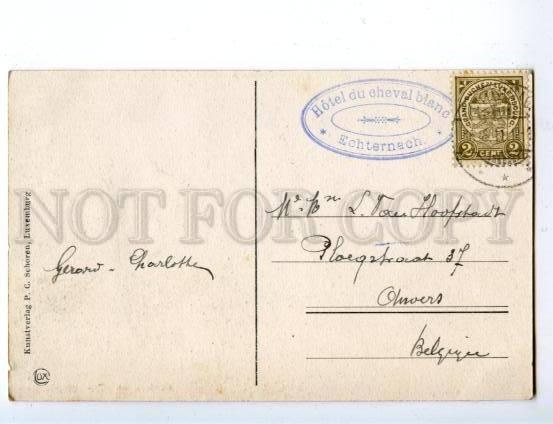 Hôtel du cheval blanc
* Echternach. *
2 CENT 2
NOT FOR COPY
L. Van Hoofstadt
Ploegstraat 37
Anvers
Belgique
Gerard - Charlotte
Kunstverlag P. C. Schoren, Luxemburg